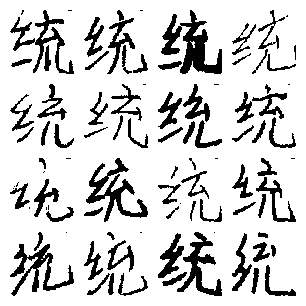 统统统统
统统统统
统统统统
统统统统